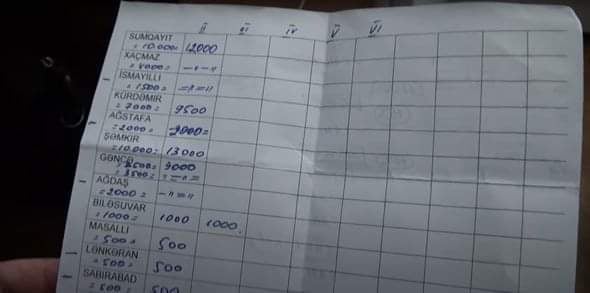 II III IV V VI
SUMQAYIT
=10.000= 12000
XAÇMAZ
=4000= —〃—〃
İSMAYILLI
=1500= —〃=〃
KÜRDƏMİR
=7000= 9500
AĞSTAFA
=2000= 2000=
ŞƏMKİR
=10.000= 13000
GƏNCƏ
=8500= 9000
AĞDAŞ
=2000= —〃=〃
BİLƏSUVAR
=1000= 1000 1000.
MASALLI
=500= 500
LƏNKƏRAN
=500= 500
SABİRABAD
=500= 500